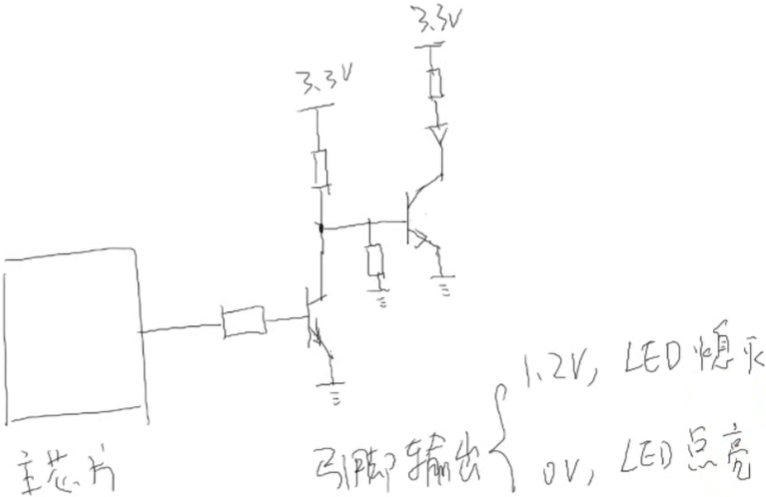 3.3V
3.3V
主芯片
引脚输出
1.2V, LED熄灭
0V, LED点亮